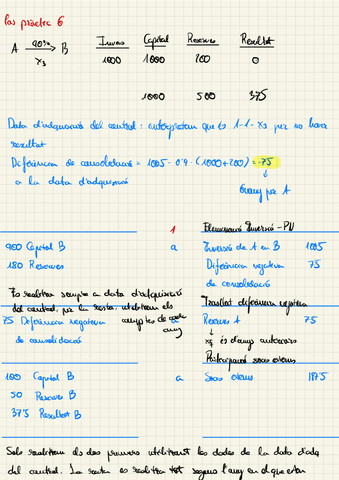 Cas pràctic 6
A 90% B Invers Capital Reserves Resultat
x3 1000 1000 200 0
1000 500 375
Data d'adquisició del control: interpretem que és 1-1-x3 per no haver
resultat
Diferència de consolidació = 1005 - 0'9 · (1000+200) = -75
a la data d'adquisició
Guany per A
1 Eliminació Inversió - PN
900 Capital B a Inversió de A en B 1005
180 Reserves Diferència negativa 75
de consolidació
Es realitza sempre a data d'adquisició
del control, per la resta, utilitzem els
comptes de cada
any
Trasllat diferència negativa
75 Diferència negativa a Reserves A 75
de consolidació
x3 és d'anys anteriors
Participació socis externs
100 Capital B a Socis externs 187'5
50 Reserves B
37'5 Resultat B
Sols realitzem els dos primers utilitzant les dades de la data d'adq
del control. La resta es realitza tot segons l'any en el que estem